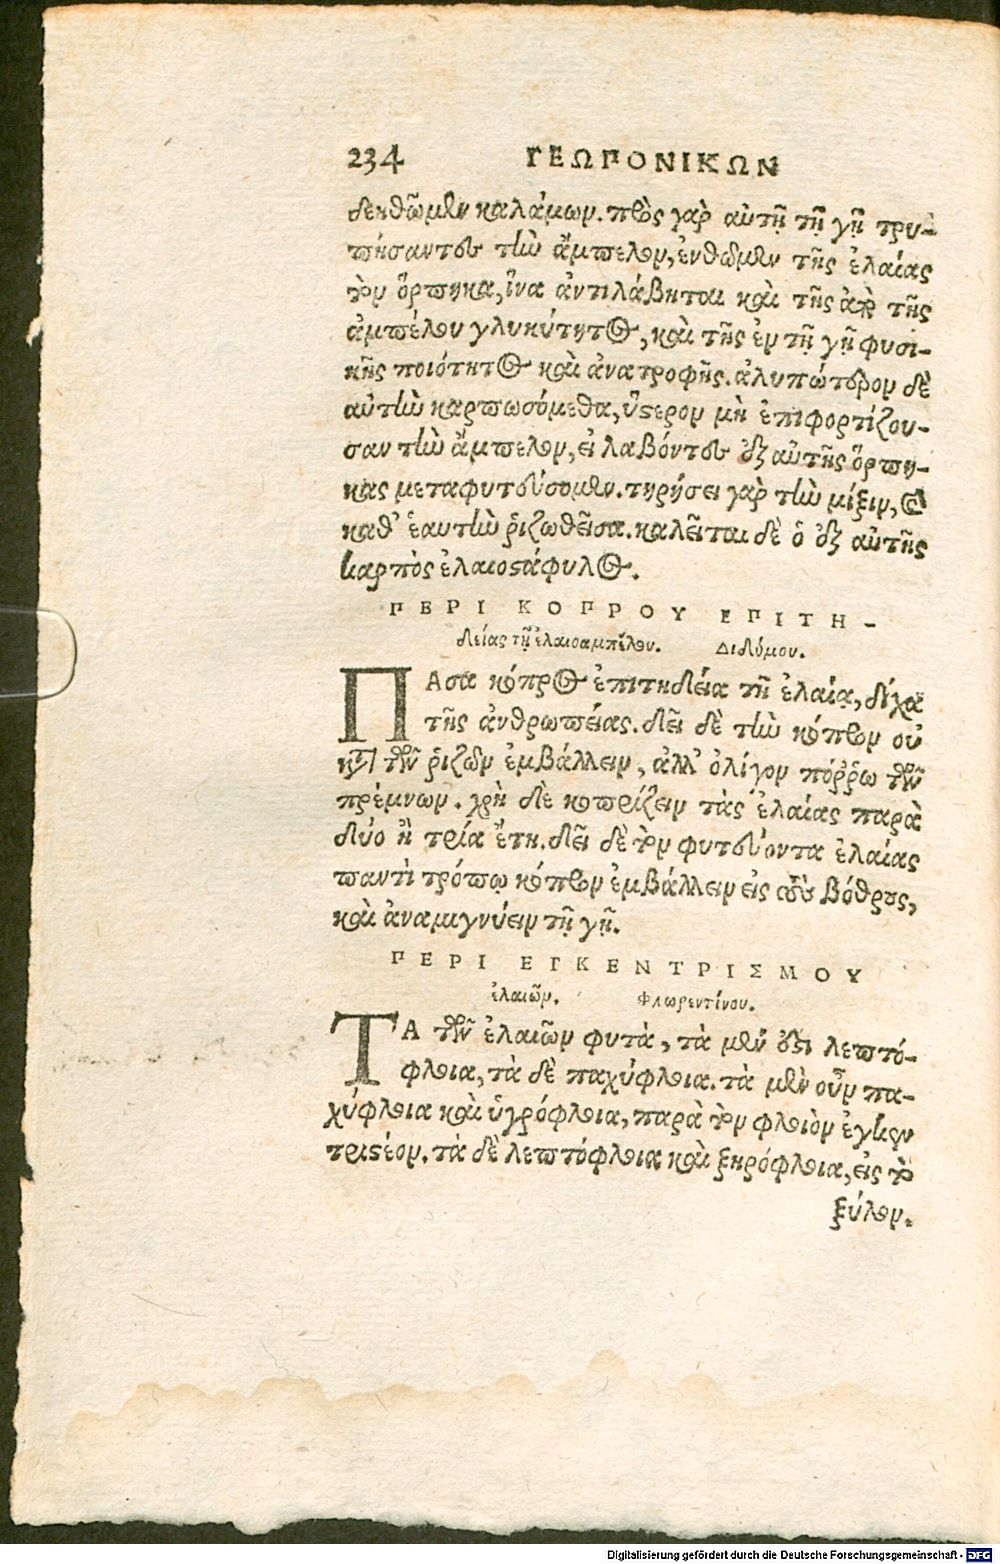 234 ΓΕΩΠΟΝΙΚΩΝ
δεηθῶμεν καλάμων. πρὸς γὰρ αὐτῇ τῇ γῇ τρυ-
πήσαντες τὴν ἄμπελον, ἐνθῶμεν τῆς ἐλαίας
τὸν ὄρπηκα, ἵνα ἀντιλάβηται καὶ τῆς ἀπὸ τῆς
ἀμπέλου γλυκύτητος, καὶ τῆς ἐν τῇ γῇ φυσι-
κῆς ποιότητος καὶ ἀνατροφῆς. ἀλυπώτερον δὲ
αὐτὴν καρπωσόμεθα, ὕστερον μὴ ἐπιφορτίζου-
σαν τὴν ἄμπελον, εἰ λαβόντες ἐξ αὐτῆς ὅρπη-
κας μεταφυτεύσομεν. τηρήσει γὰρ τὴν μίξιν, καὶ
καθ' ἑαυτὴν ῥιζωθεῖσα. καλεῖται δὲ ὁ ἐξ αὐτῆς
καρπὸς ἐλαιοστάφυλος.
ΠΕΡΙ ΚΟΠΡΟΥ ΕΠΙΤΗ-
δείας τῇ ἐλαιοαμπέλου. Διδύμου.
ΠΑσα κόπρος ἐπιτηδεία τῇ ἐλαίᾳ, δίχα
τῆς ἀνθρωπείας. δεῖ δὲ τὴν κόπρον οὐ
κατὰ τῶν ῥιζῶν ἐμβάλλειν, ἀλλ' ὀλίγον πόῤῥω τῶν
πρέμνων. χρὴ δὲ κοπρίζειν τὰς ἐλαίας παρὰ
δύο ἢ τρία ἔτη. δεῖ δὲ τὸν φυτεύοντα ἐλαίας
παντὶ τρόπῳ κόπρον ἐμβάλλειν εἰς τοὺς βόθρους,
καὶ ἀναμιγνύειν τῇ γῇ.
ΠΕΡΙ ΕΓΚΕΝΤΡΙΣΜΟΥ
ἐλαιῶν. Φλωρεντίνου.
ΤΑ τῶν ἐλαιῶν φυτὰ, τὰ μέν ἐστι λεπτό-
φλοια, τὰ δὲ παχύφλοια. τὰ μὲν οὖν πα-
χύφλοια καὶ ὑγρόφλοια, παρὰ τὸν φλοιὸν ἐγκεν
τριστέον. τὰ δὲ λεπτόφλοια καὶ ξηρόφλοια, εἰς τὸ
ξύλον.
Digitalisierung gefördert durch die Deutsche Forschungsgemeinschaft - DFG